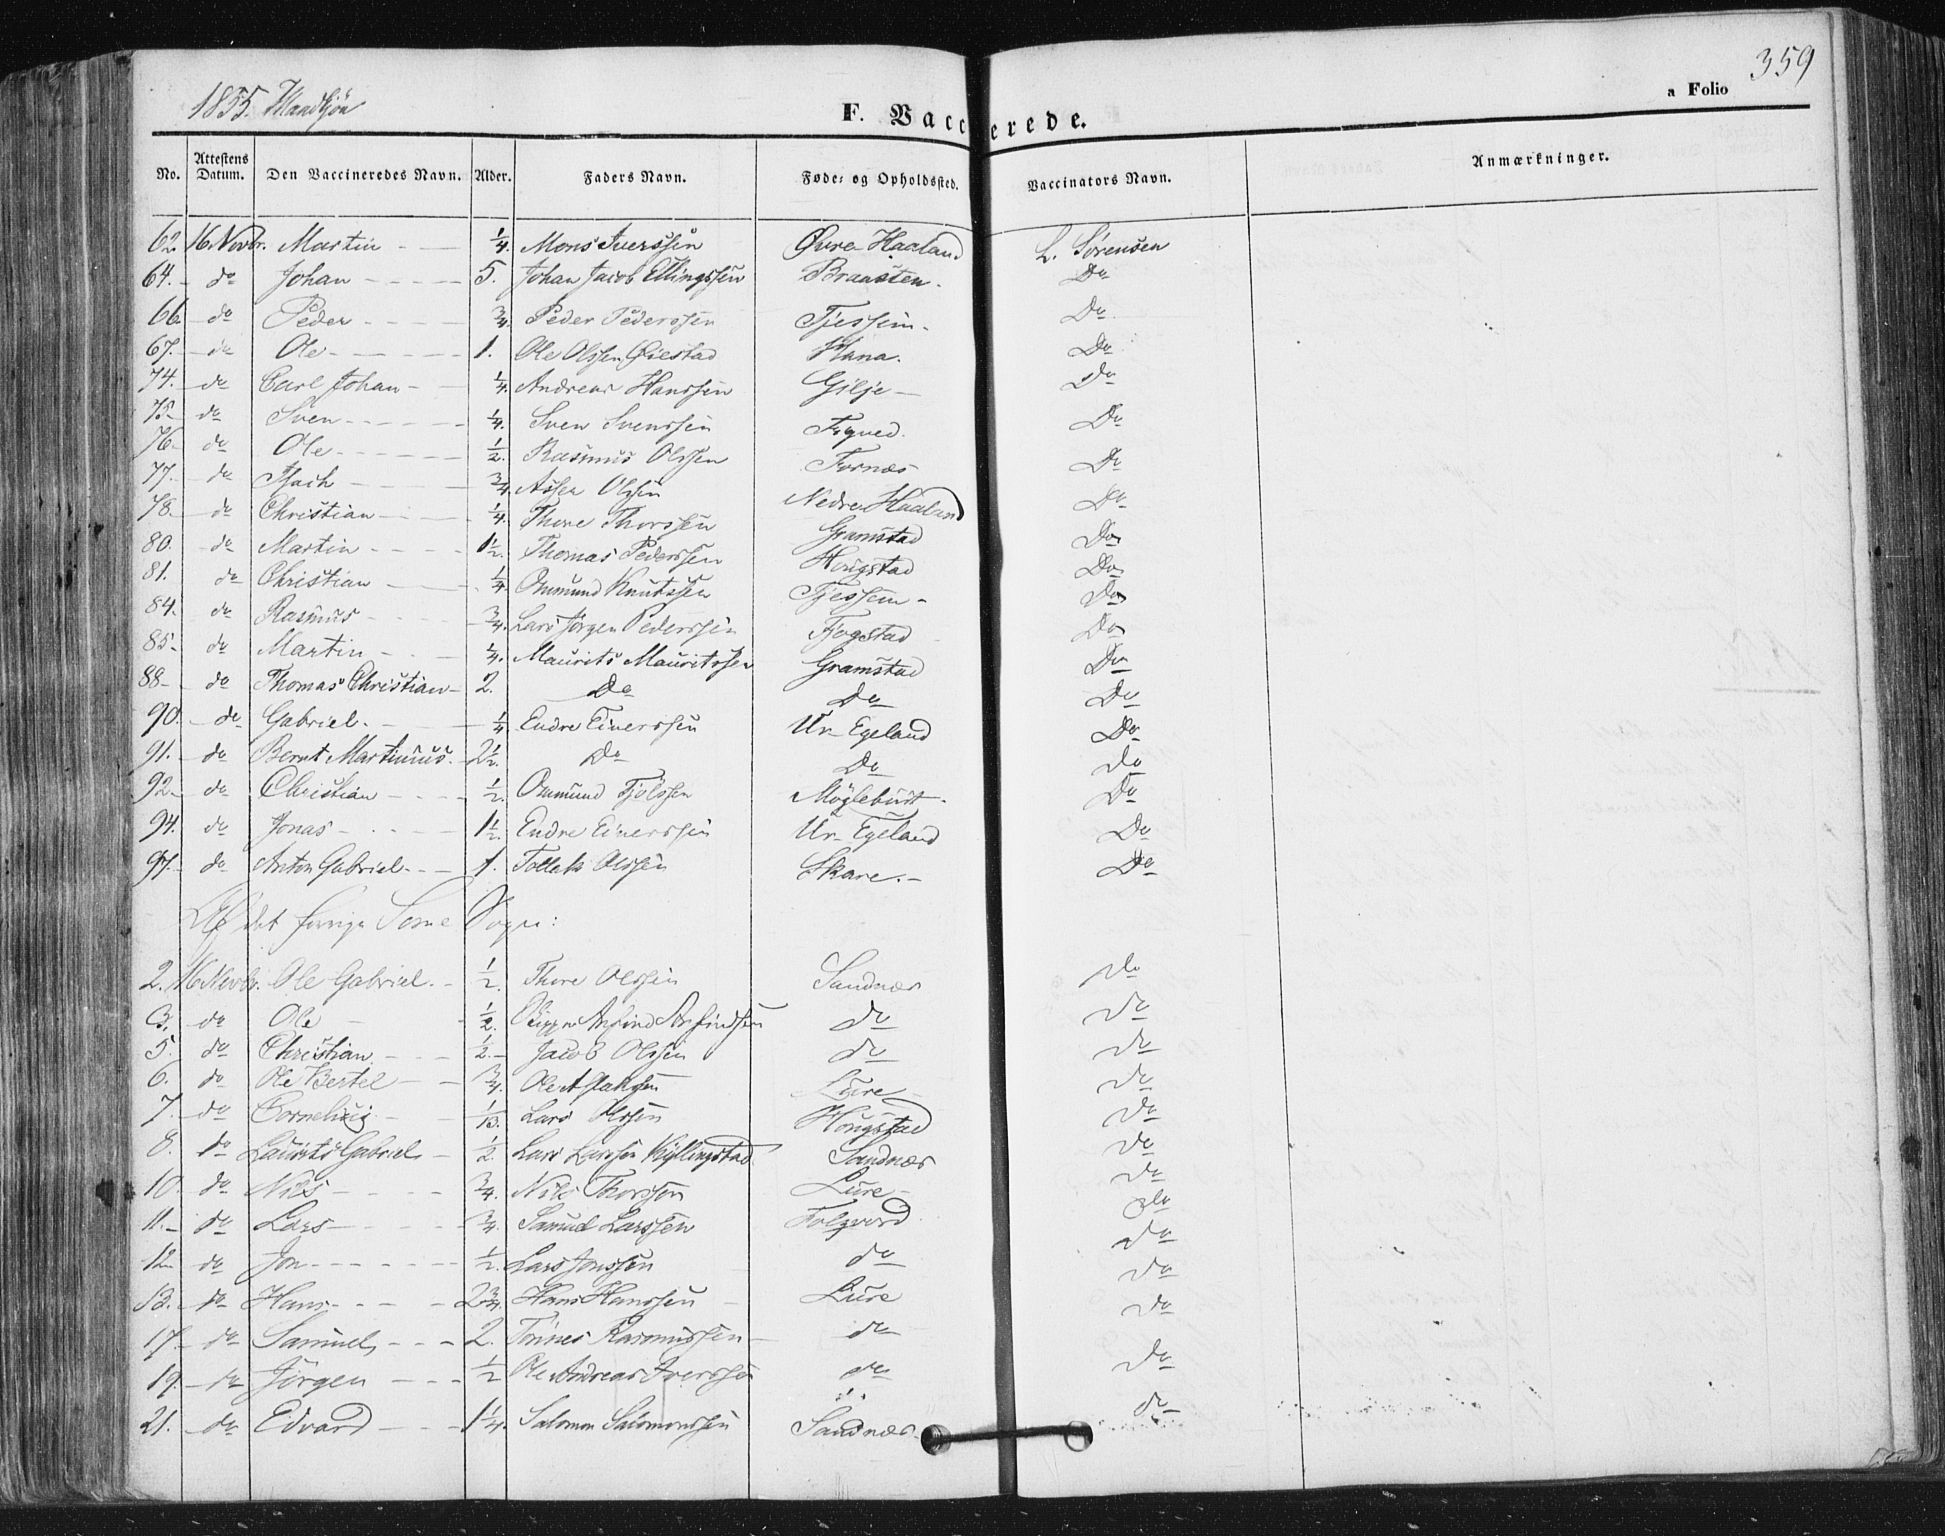 1855. Mandkjön
F. Vaccinerede.
a Folio 359
No. Attestens Datum. Den Vaccineredes Navn. Alder. Faders Navn. Føde- og Opholdssted. Vaccinators Navn. Anmærkninger.
62. 16 Novbr. Martin 1/4. Mons Iverssen Øvre Haaland L. Sørensen
64. do Johan 5. Johan Jacob Ellingssen Braasten Do
66. do Peder 3/4. Peder Pederssen Tjessem Do
67. do Ole 1. Ole Olssen Øiestad Hana. Do
74. do Carl Johan 1/4. Andreas Hanssen Gilje Do
75. do Sven 1/4. Sven Svenssen Do
76. do Ole 1/2. Rasmus Olssen Fornæs Do
77. do 3/4. Asser Olssen Nedre Haaland Do
78. do Christian 1/4. Thore Thorssen Gramstad Do
80. do Martin 1 1/2. Thomas Pederssen Hougstad Do
81. do Christian 1/4. Ommund Knutssen Tjessem Do
84. do Rasmus 3/4. Lars Jörgen Pederssen Fjogstad Do
85. do Martin 1/4. Maurits Mauritssen Gramstad Do
88. do Thomas Christian 2. Do Do Do
90. do Gabriel. 1/4 Endre Einerssen Ur Egeland Do
91. do Bernt Martinius. 2 1/2. Do Do do
92. do Christian 1/2. Ommund Fjölssen Mögleburt Do
94. do Jonas 1 1/2. Endre Einerssen Ur Egeland Do
97. do Anton Gabriel 1. Tollak Olssen Skare. Do
Af det forrige Some Sogn:
2. 16 Novbr. Ole Gabriel. 1/2. Thore Olssen Sandnæs do
3. do Ole 1/2. Arfind Arfindssen do do
5. do Christian 1/2. Jacob Olssen do do
6. do Ole Bertel 3/4. Ole Lure do
7. do Cornelius 1/13. Lars Olssen Hougstad do
8. do Laurits Gabriel 1/2. Lars Larssen Kyllingstad Sandnæs do
10. do Nils 3/4. Nils Thorssen Lure do
11. do Lars 3/4. Samuel Larssen Folgvord do
12 do Jon 1/2. Lars Jonssen do do
13. do Hans 2 3/4. Hans Hanssen Lure do
17 do Samuel 2. Tönnes Rasmussen do do
19. do Jörgen 1/2 Ole Andreas Iverssen do do
21. do Edvard 1 1/4. Salomon Salomonssen Sandnæs. do